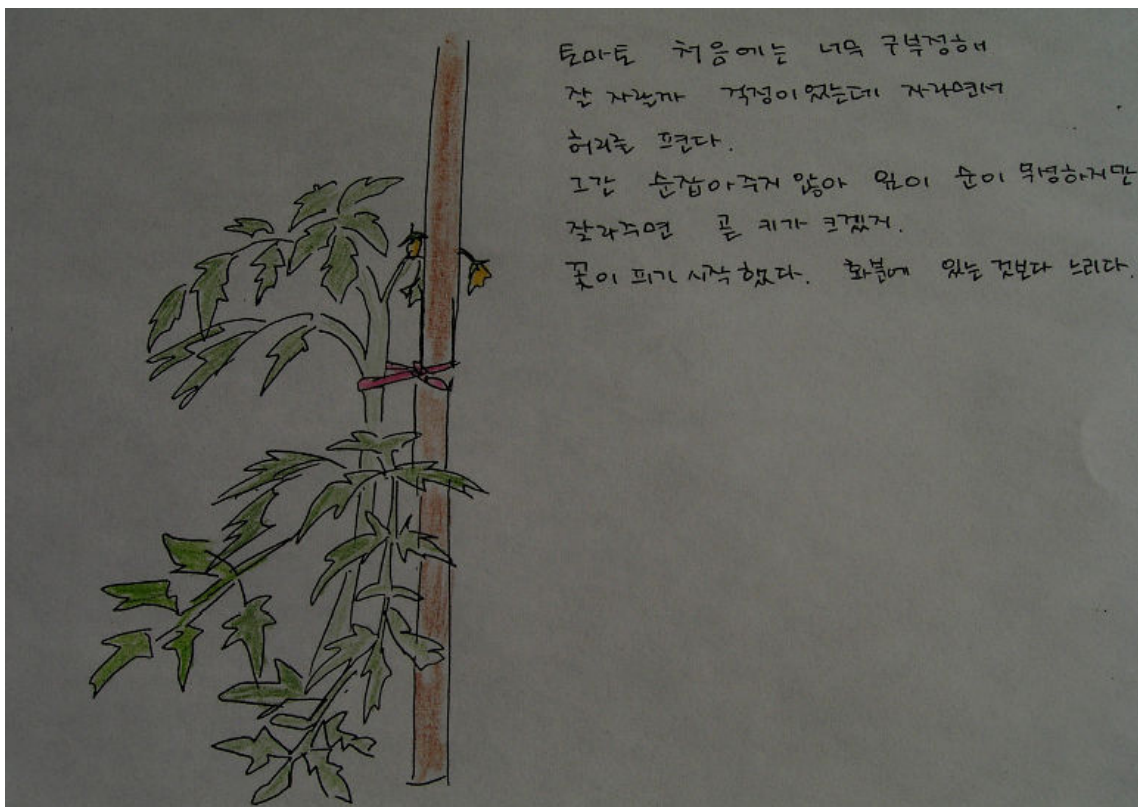 토마토 처음에는 너무 구부정해
잘 자랄까 걱정이었는데 자라면서
허리를 편다.
그간 순잡아주지 않아 잎이 순이 무성하지만
잘라주면 곧 키가 크겠지.
꽃이 피기 시작했다. 화분에 있는 것보다 느리다.